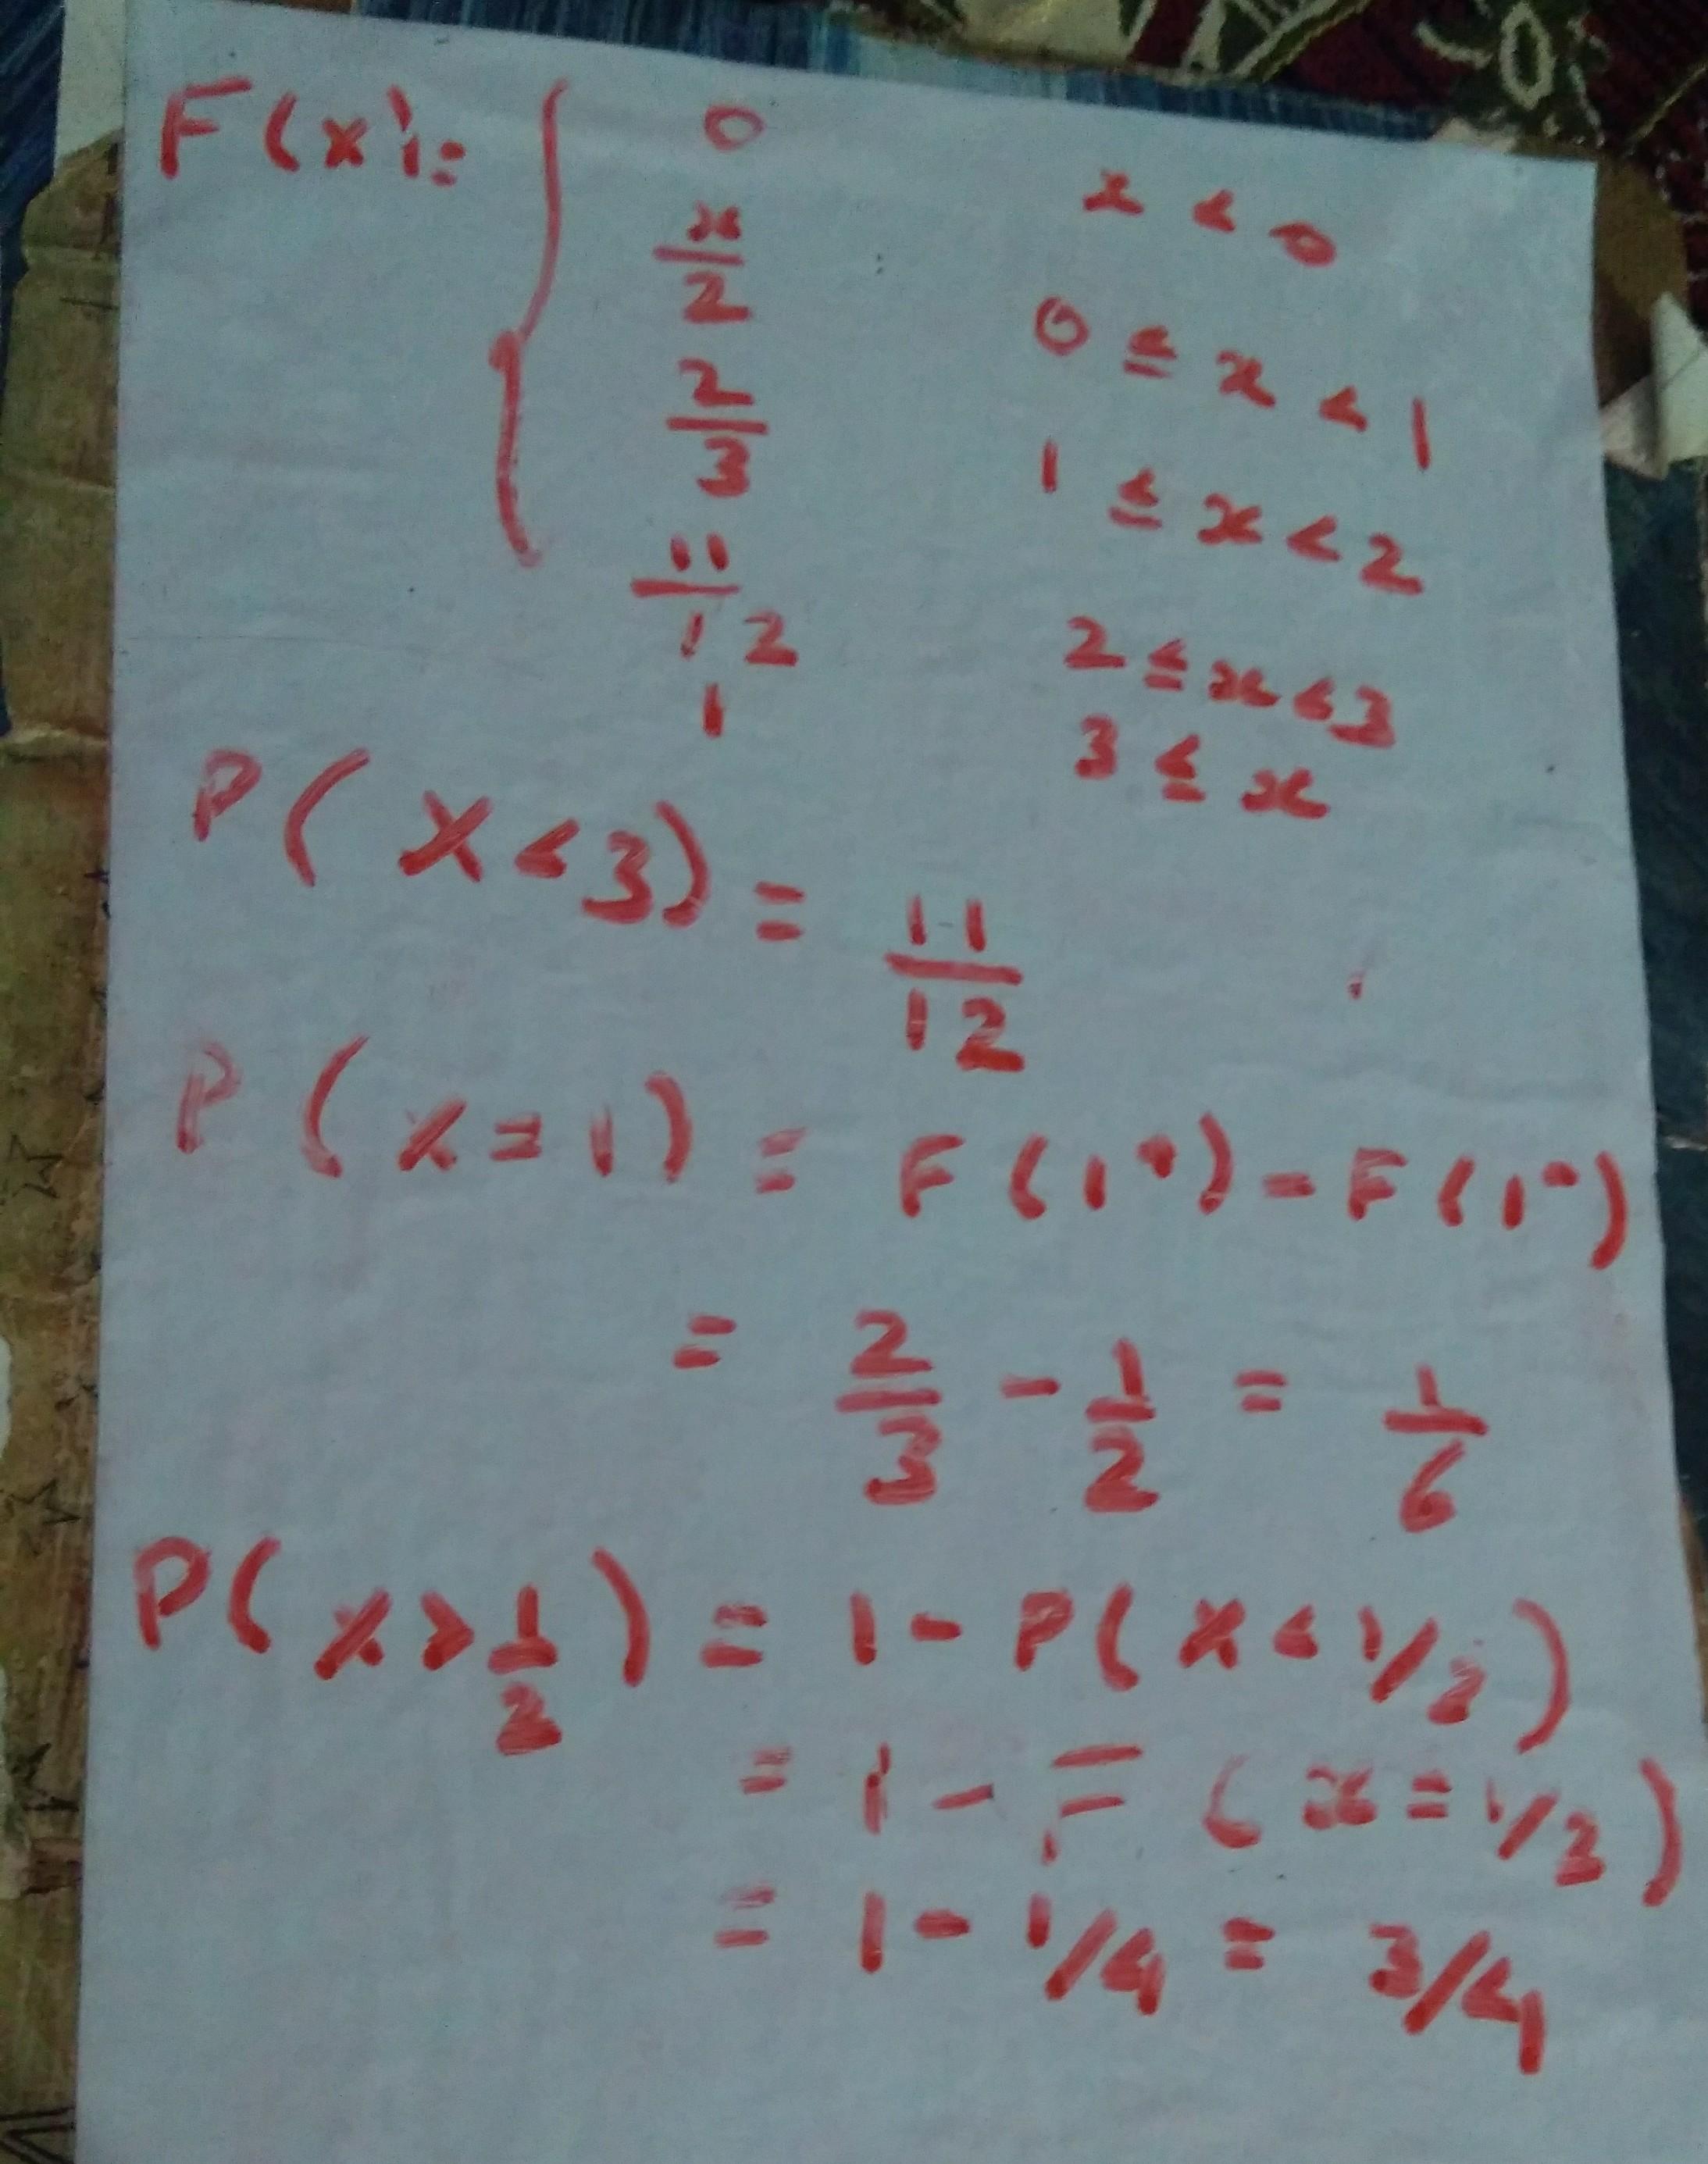 F(x) = { 0 x < 0
x/2 0 ≤ x < 1
2/3 1 ≤ x < 2
11/12 2 ≤ x < 3
1 3 ≤ x
P(X < 3) = 11/12
P(X = 1) = F(1⁺) - F(1⁻)
= 2/3 - 1/2 = 1/6
P(X > 1/2) = 1 - P(X < 1/2)
= 1 - F(x = 1/2)
= 1 - 1/4 = 3/4